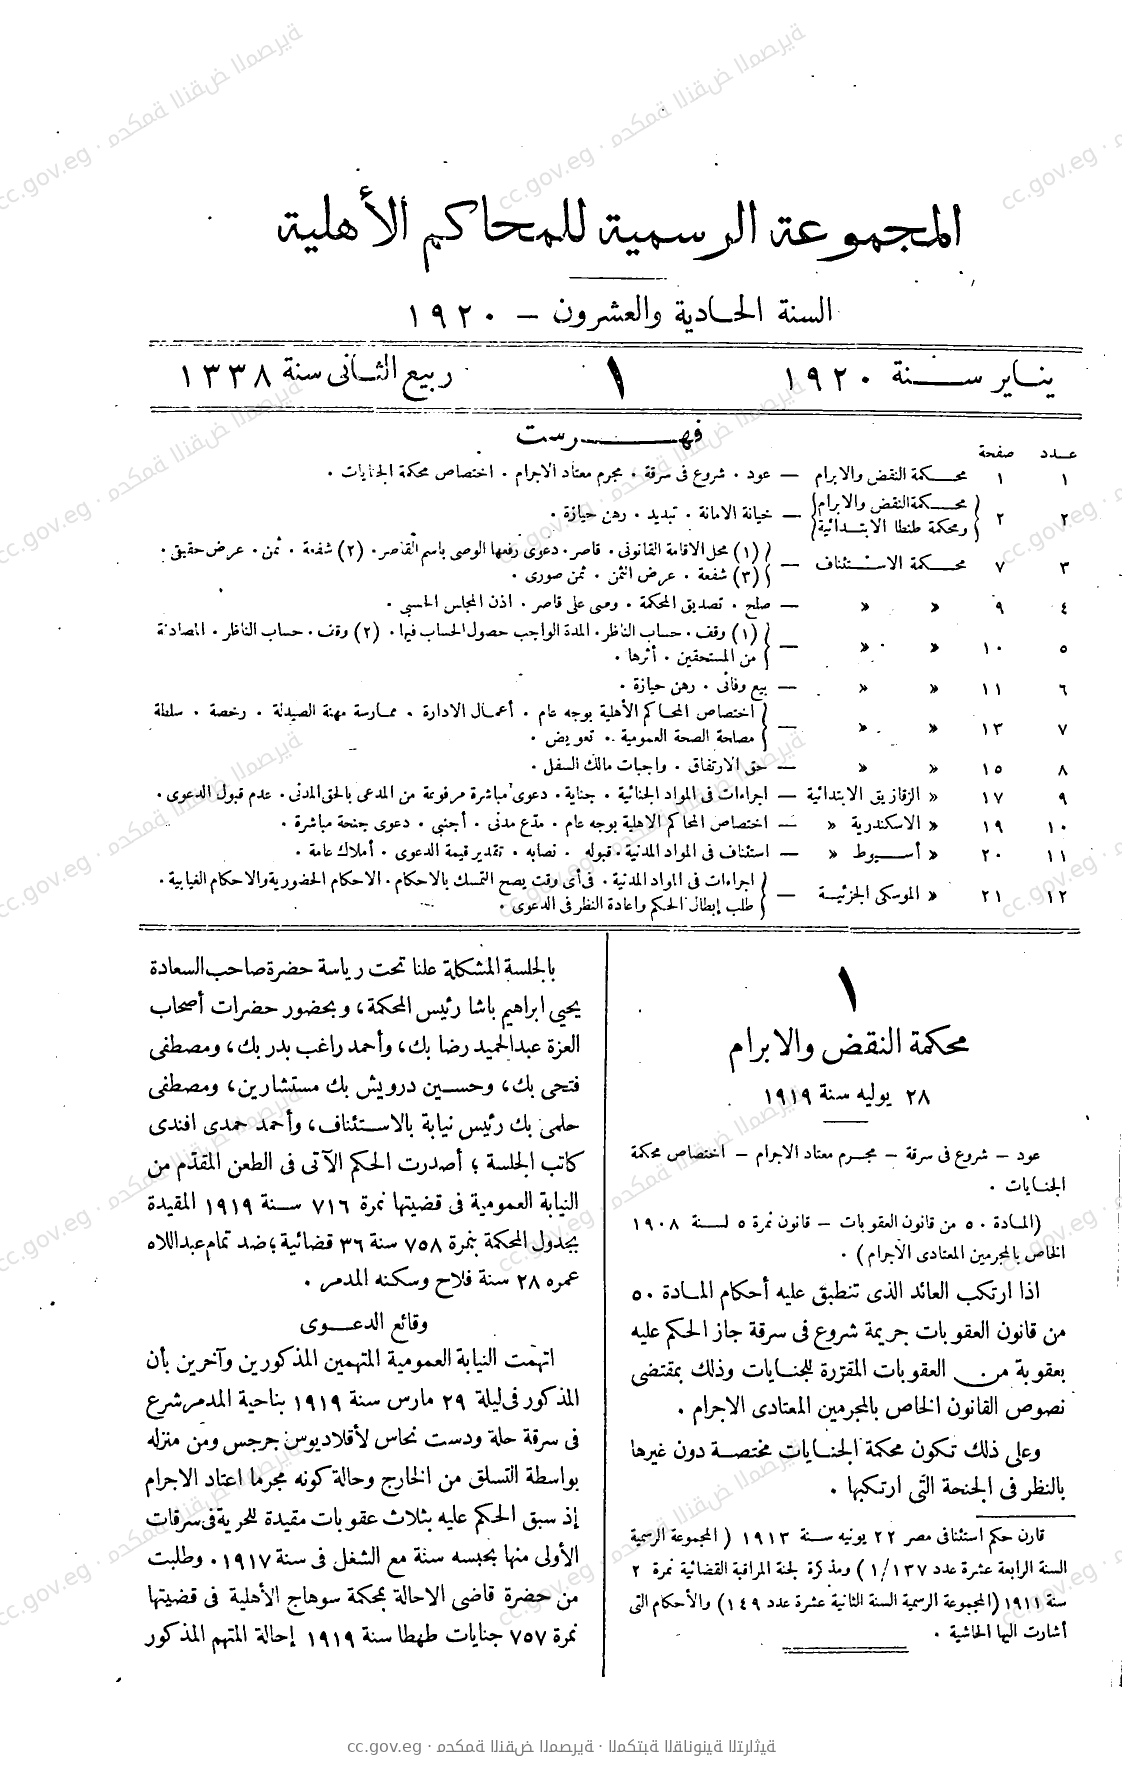 المجموعة الرسمية للمحاكم الأهلية
السنة الحادية والعشرون – ١٩٢٠
يناير سنة ١٩٢٠
١
ربيع الثانى سنة ١٣٣٨
فهرست
عدد صفحة
١ ١ محكمة النقض والابرام — عود . شروع فى سرقة . مجرم معتاد الاجرام . اختصاص محكمة الجنايات .
٢ ٢ { محكمة النقض والابرام ومحكمة طنطا الابتدائية } — خيانة الامانة . تبديد . رهن حيازة .
٣ ٧ محكمة الاستئناف — { (١) محل الاقامة القانونى . قاصر . دعوى رفعها الوصى باسم القاصر . (٢) شفعة . ثمن . عرض حقيقى .
(٣) شفعة . عرض الثمن . ثمن صورى .
٤ ٩ » » — صلح . تصديق المحكمة . وصى على قاصر . اذن المجلس الحسبى .
٥ ١٠ » » — { (١) وقف . حساب الناظر . المدة الواجب حصول الحساب فيها . (٢) وقف . حساب الناظر . المصادقة
من المستحقين . أثرها .
٦ ١١ » » — بيع وفائى . رهن حيازة .
٧ ١٣ » » — { اختصاص المحاكم الأهلية بوجه عام . أعمال الادارة . ممارسة مهنة الصيدلة . رخصة . سلطة
مصلحة الصحة العمومية . تعويض .
٨ ١٥ » » — حق الارتفاق . واجبات مالك السفل .
٩ ١٧ » الزقازيق الابتدائية — اجراءات فى المواد الجنائية . جناية . دعوى مباشرة مرفوعة من المدعى بالحق المدنى . عدم قبول الدعوى .
١٠ ١٩ » الاسكندرية » — اختصاص المحاكم الاهلية بوجه عام . مدّع مدنى . أجنبى . دعوى جنحة مباشرة .
١١ ٢٠ » أسيوط » — استئناف فى المواد المدنية . قبوله . نصابه . تقدير قيمة الدعوى . أملاك عامة .
١٢ ٢١ » الموسكى الجزئية — { اجراءات فى المواد المدنية . فى أى وقت يصح التمسك بالاحكام . الاحكام الحضورية والاحكام الغيابية .
طلب إبطال الحكم واعادة النظر فى الدعوى .
١
محكمة النقض والابرام
٢٨ يوليه سنة ١٩١٩
عود – شروع فى سرقة – مجرم معتاد الاجرام – اختصاص محكمة
الجنايات .
(المادة ٥٠ من قانون العقوبات – قانون نمرة ٥ لسنة ١٩٠٨
الخاص بالمجرمين المعتادى الاجرام) .
اذا ارتكب العائد الذى تنطبق عليه أحكام المادة ٥٠
من قانون العقوبات جريمة شروع فى سرقة جاز الحكم عليه
بعقوبة من العقوبات المقرّرة للجنايات وذلك بمقتضى
نصوص القانون الخاص بالمجرمين المعتادى الاجرام .
وعلى ذلك تكون محكمة الجنايات مختصة دون غيرها
بالنظر فى الجنحة التى ارتكبها .
قارن حكم استئنافى مصر ٢٢ يونيه سنة ١٩١٣ ( المجموعة الرسمية
السنة الرابعة عشرة عدد ١/١٣٧ ) ومذكرة لجنة المراقبة القضائية نمرة ٢
سنة ١٩١١ (المجموعة الرسمية السنة الثانية عشرة عدد ١٤٩) والأحكام التى
أشارت اليها الحاشية .
بالجلسة المشكلة علنا تحت رياسة حضرة صاحب السعادة
يحيى ابراهيم باشا رئيس المحكمة، وبحضور حضرات أصحاب
العزة عبد الحميد رضا بك، وأحمد راغب بدر بك، ومصطفى
فتحى بك، وحسين درويش بك مستشارين، ومصطفى
حلمى بك رئيس نيابة بالاستئناف، وأحمد حمدى افندى
كاتب الجلسة ؛ أصدرت الحكم الآتى فى الطعن المقدّم من
النيابة العمومية فى قضيتها نمرة ٧١٦ سنة ١٩١٩ المقيدة
بجدول المحكمة بنمرة ٧٥٨ سنة ٣٦ قضائية ؛ ضد تمام عبد اللاه
عمره ٢٨ سنة فلاح وسكنه المدمر .
وقائع الدعوى
اتهمت النيابة العمومية المتهمين المذكورين وآخرين بأن
المذكور فى ليلة ٢٩ مارس سنة ١٩١٩ بناحية المدمر شرع
فى سرقة حلة ودست نحاس لأقلاديوس جرجس ومن منزله
بواسطة التسلق من الخارج وحالة كونه مجرما اعتاد الاجرام
إذ سبق الحكم عليه بثلاث عقوبات مقيدة للحرية فى سرقات
الأولى منها بحبسه سنة مع الشغل فى سنة ١٩١٧ . وطلبت
من حضرة قاضى الاحالة بمحكمة سوهاج الأهلية فى قضيتها
نمرة ٧٥٧ جنايات طهطا سنة ١٩١٩ إحالة المتهم المذكور
cc.gov.eg · محكمة النقض المصرية · المكتبة القانونية التراثية